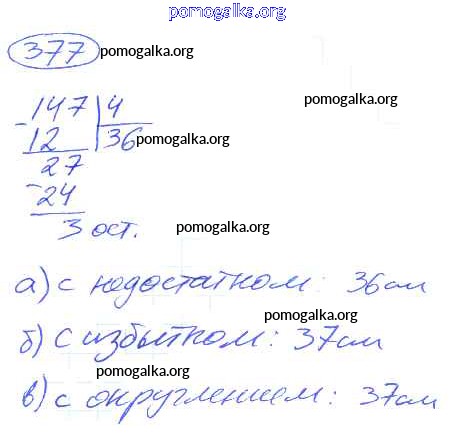 pomogalka.org
377 pomogalka.org
147 | 4
pomogalka.org
- 12 | 36 pomogalka.org
27
- 24
3 ост. pomogalka.org
а) с недостатком: 36 см
pomogalka.org
б) с избытком: 37 см
pomogalka.org
в) с округлением: 37 см